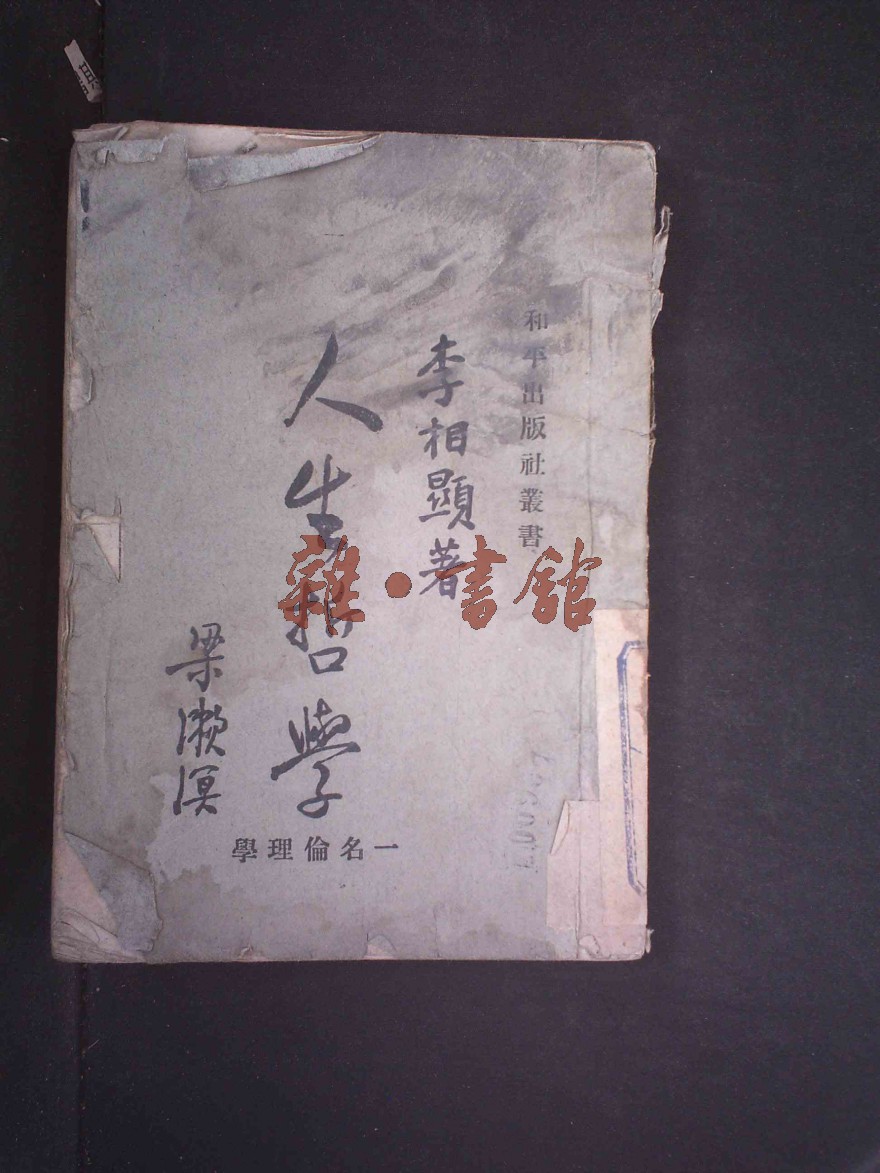 和平出版社叢書
李相顯著
人生哲學
梁漱溟
一名倫理學
雜·書館